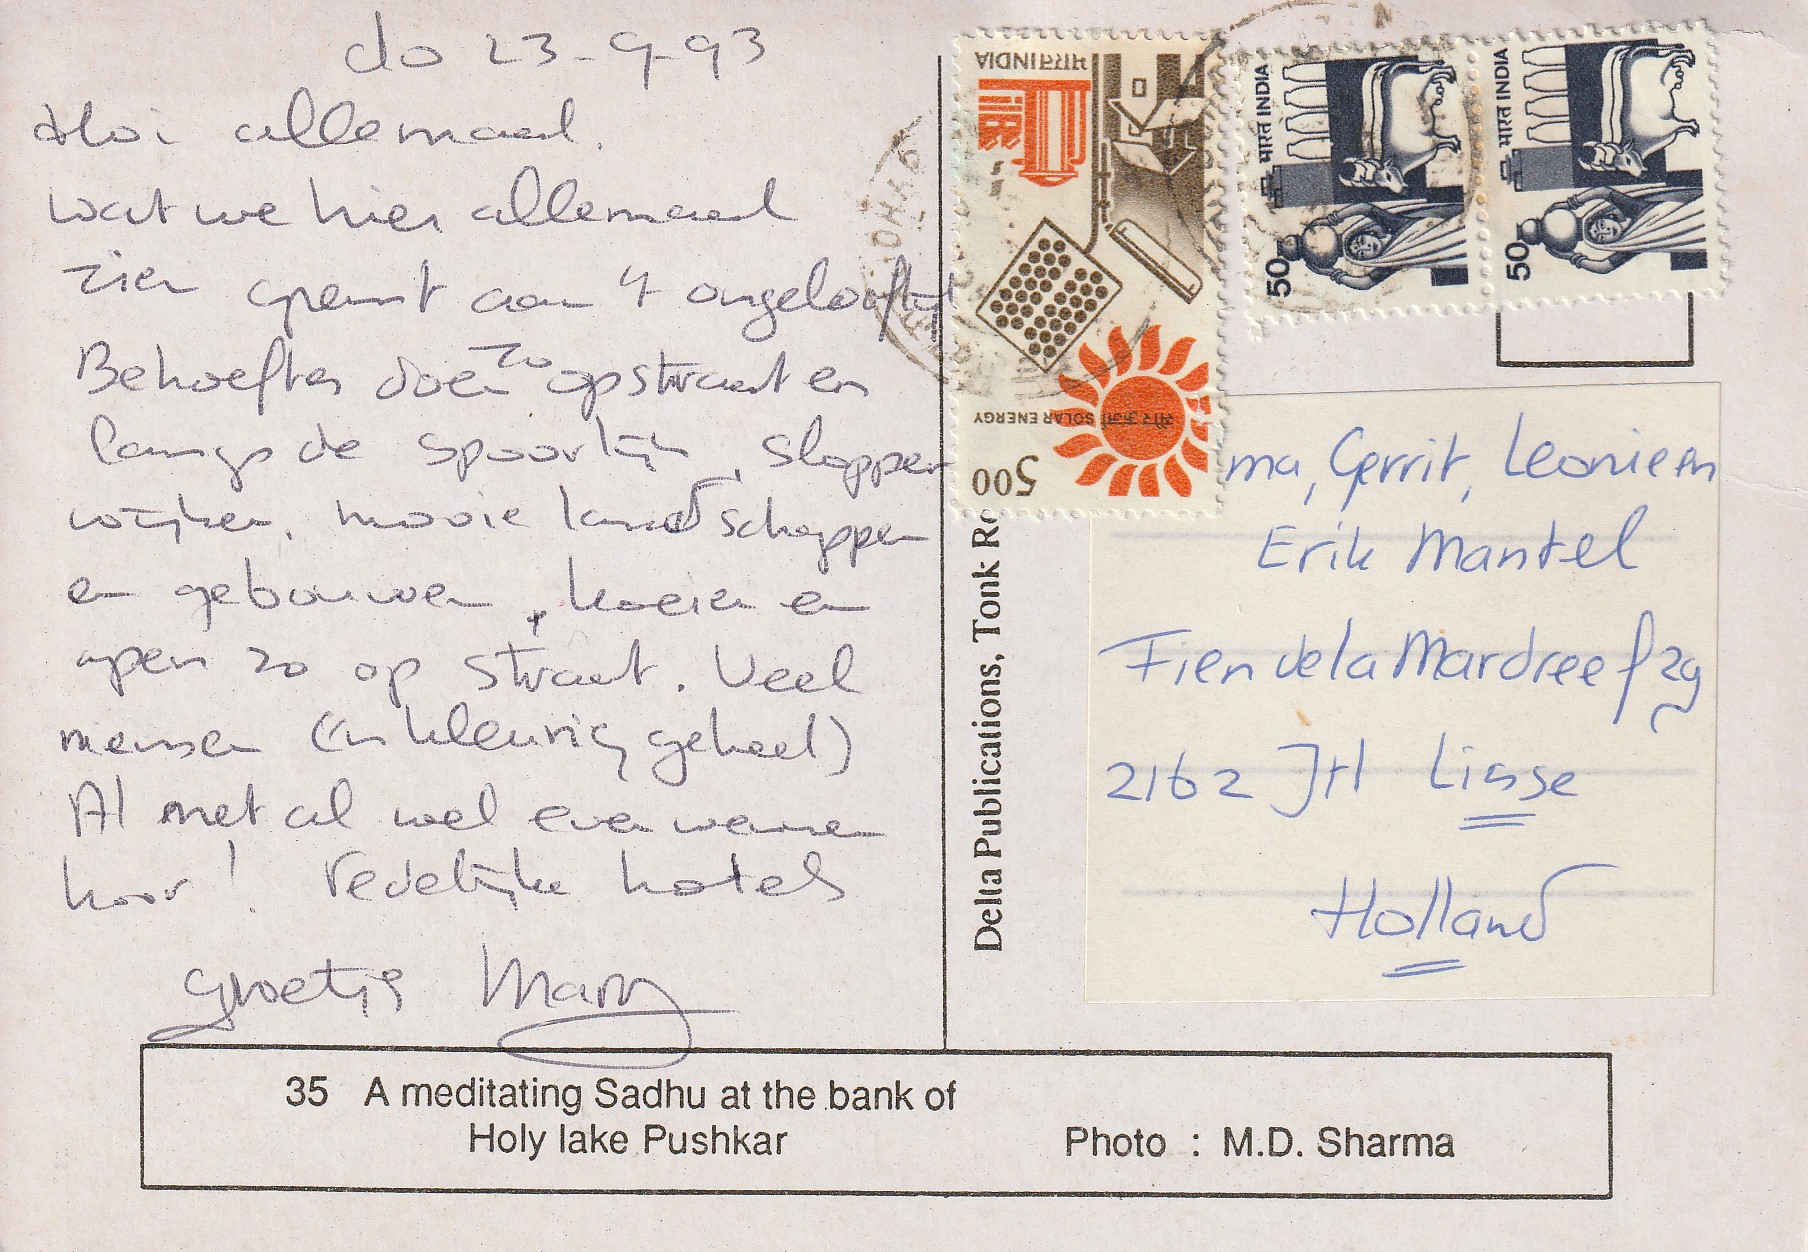 do 23-9-93
Hoi allemaal.
wat we hier allemaal
zien grenst aan 't ongelooflijk
Behoeftes doen zo op straat en
langs de spoorlijn, sloppen
wijken, mooie landschappen
en gebouwen, koeien en
apen zo op straat. Veel
mensen (in kleurig geheel)
Al met al wel even wennen
hoor! redelijke hotels
groetjes Mary
भारत INDIA
सौर ऊर्जा SOLAR ENERGY
5.00
भारत INDIA
50
भारत INDIA
50
Delta Publications, Tonk Ro
ma, Gerrit, Leonie en
Erik Mantel
Fien de la Mardreef 29
2162 JH Lisse
Holland
35 A meditating Sadhu at the bank of
Holy lake Pushkar
Photo : M.D. Sharma